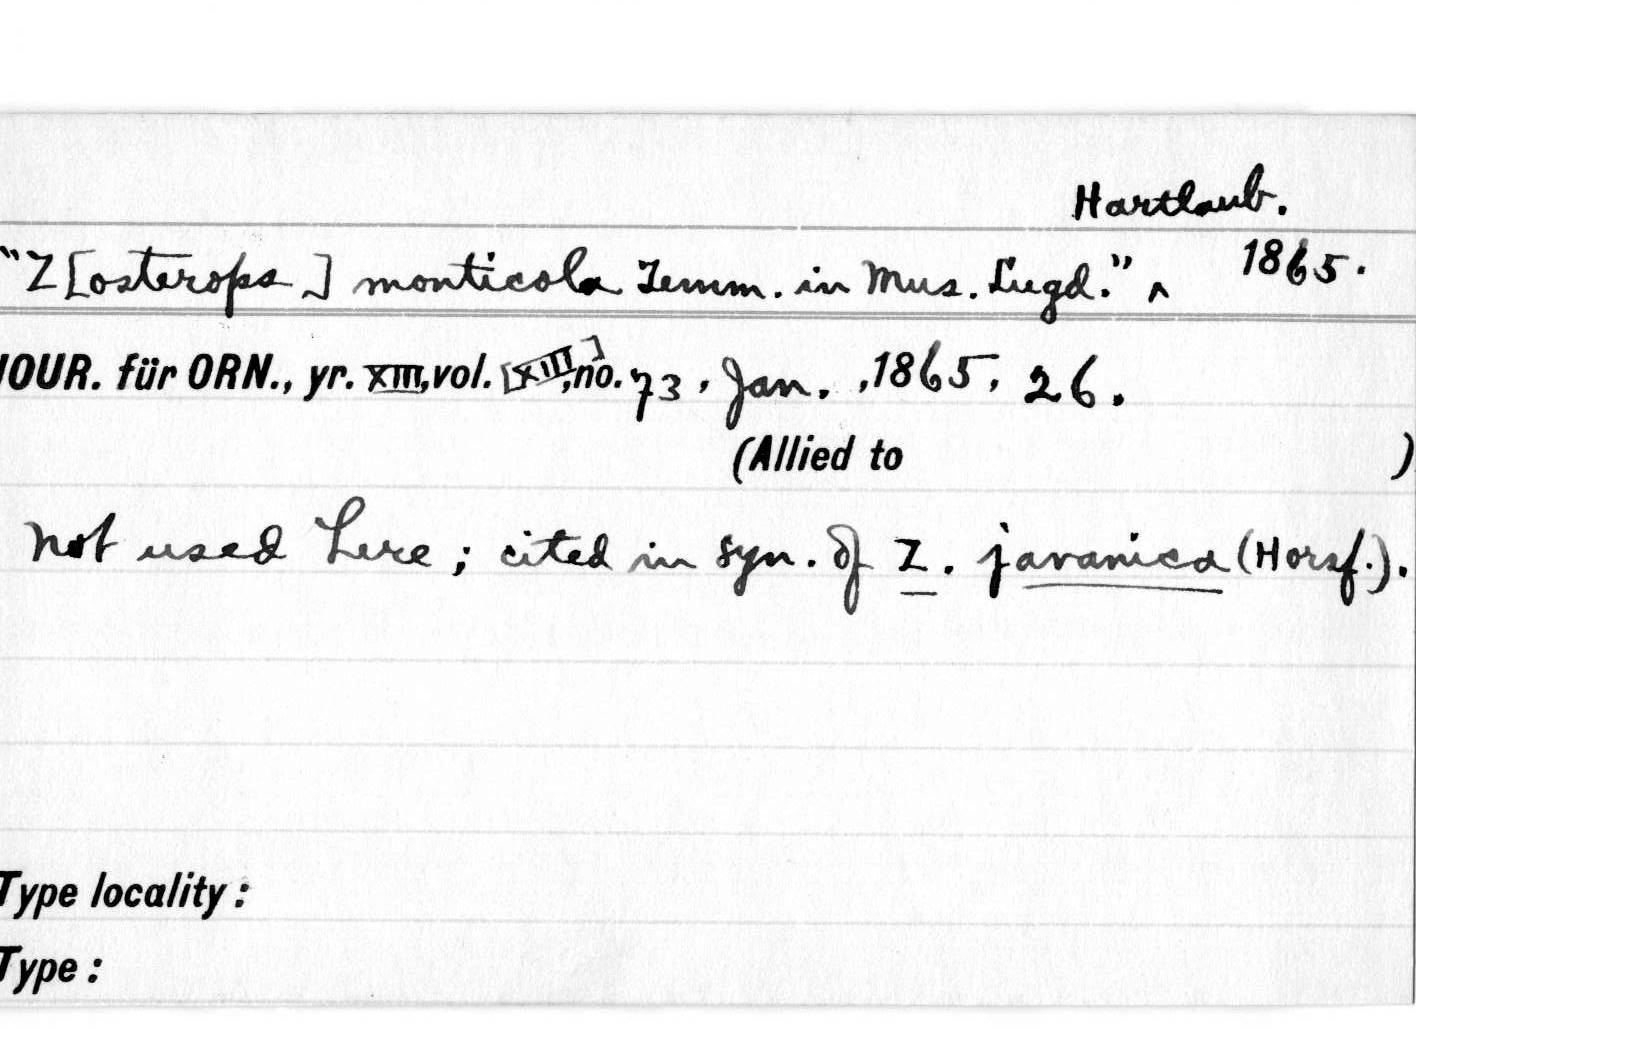 Hartlaub.
"Z[osterops] monticola Temm. in Mus. Lugd." ^ 1865.
JOUR. für ORN., yr. XIII, vol. [XIII], no. 73, Jan., 1865, 26.
(Allied to )
Not used here; cited in syn. of Z. javanica (Horsf.).
Type locality:
Type: